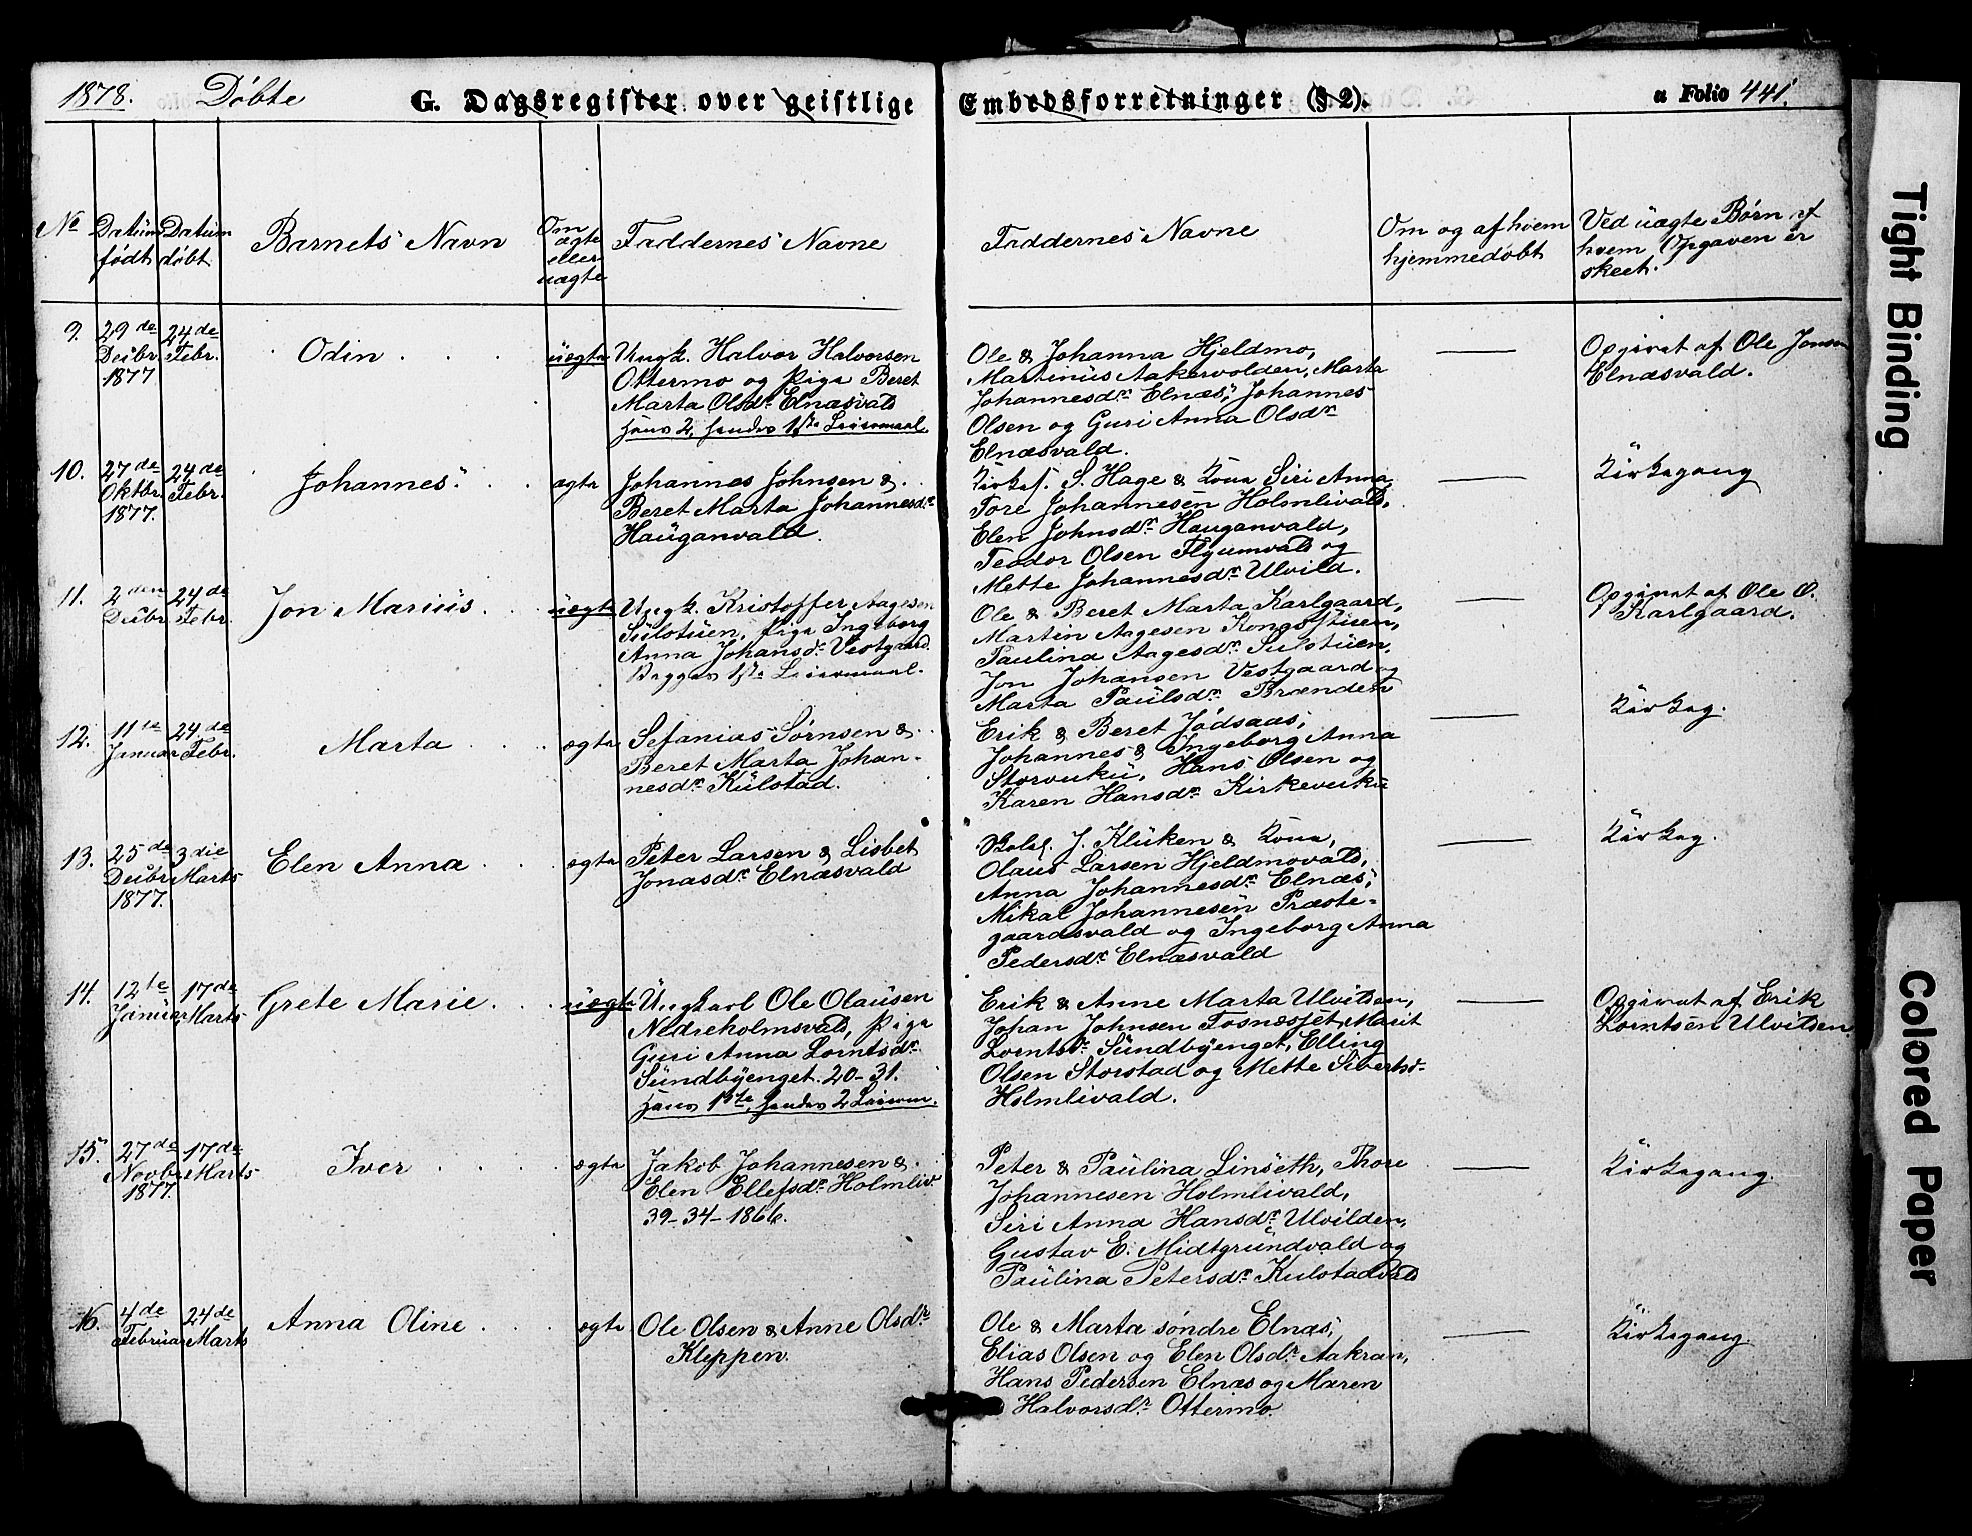 1878. Døbte G. Dagsregister over geistlige Embedsforretninger (§ 2). a Folio 441.
No
Datum født
Datum døbt
Barnets Navn
Om ægte eller uægte
Faddernes Navne
Faddernes Navne
Om og af hvem hjemmedøbt
Ved uægte Børn af hvem Opgaven er skeet.
9. 29de Decbr. 1877 24de Febr. Odin uægte
Ungk. Halvor Halvorsen
Ottermo og Pige Beret
Marta Olsdr. Elnæsvald
hans 2, hendes 1ste Leiermaal
Ole & Johanna Hjeldmo,
Martinus Aakervolden, Marta
Johannesdr. Elnæs, Johannes
Olsen og Guri Anna Olsdr.
Elnæsvald.
Opgivet af Ole Jonsen
Elnæsvald.
10. 27de Oktbr. 1877. 24de Febr. Johannes. ægte
Johannes Johnsen &
Beret Marta Johannesdr.
Hauganvald.
Kirkes. S. Hage & Kone Siri Anna,
Tore Johannesen Holmlivald,
Elen Johnsdr. Hauganvald,
Teodor Olsen Flyumvald og
Mette Johannesdr. Ulvild.
Kirkegang
11. 2den Decbr. 24de Febr. Jon Marius. uægte
Ungk. Kristoffer Aagesen
Sulstuen, Pige Ingeborg
Anna Johansdr. Vestgaard.
Begges 1ste Leiermaal.
Ole & Beret Marta Karlgaard,
Martin Aagesen Kongsstuen,
Paulina Aagesdr. Sulstuen,
Jon Johansen Vestgaard og
Marta Paulsdr. Brænden
Opgivet af Ole O.
Karlgaard.
12. 11te Januar 24de Febr. Marta ægte
Sefanias Sørnsen &
Beret Marta Johan-
nesdr. Kulstad.
Erik & Beret Jødsaas,
Johannes & Ingeborg Anna
Storvuku, Hans Olsen og
Karen Hansdr. Kirkevuku
Kirkeg.
13. 25de Decbr. 1877. 3die Marts Elen Anna ægte
Peter Larsen & Lisbet
Jonasdr. Elnæsvald
J. Klüken & Kone,
Olaus Larsen Hjeldmovald,
Anna Johannesdr. Elnæs,
Mikal Johannesen Præste-
gaardsvald og Ingeborg Anna
Pedersdr. Elnæsvald
Kirkeg.
14. 12te Januar 17de Marts Grete Marie uægte
Ungkarl Ole Olausen
Nedreholmsvald, Pige
Guri Anna Lorntsdr.
Sundbyenget. 20-31.
hans 1ste, hendes 2 Leierm.
Erik & Anne Marta Ulvilden,
Johan Johnsen Fosnæsset, Marit
Lorntsdr. Sundbyenget, Elling
Olsen Storstad og Mette Sivertsdr.
Holmlivald.
Opgivet af Erik
Lorntsen Ulvilden
15. 27de Novbr. 1877. 17de Marts Iver ægte
Jakob Johannesen &
Elen Ellefsdr. Holmliv
39-34-1866.
Peter & Paulina Linseth, Thore
Johannesen Holmlivald,
Siri Anna Hansdr. Ulvilden,
Gustav E. Midtgrundvald og
Paulina Petersdr. Kulstadvald
Kirkegang.
16. 4de Februar 24de Marts Anna Oline ægte
Ole Olsen & Anne Olsdr.
Kleppen.
Ole & Marta søndre Elnæs,
Elias Olsen og Elen Olsdr. Aakran,
Hans Pedersen Elnæs og Maren
Halvorsdr. Ottermo.
Kirkegang.
Tight Binding
Colored Paper